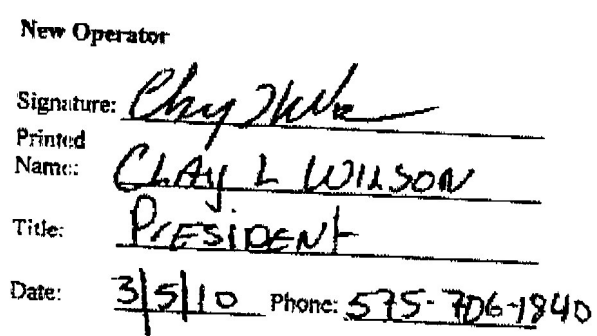 New Operator
Signature: Clay Wilson
Printed
Name: CLAY L WILSON
Title: PRESIDENT
Date: 3/5/10 Phone: 575-706-1840